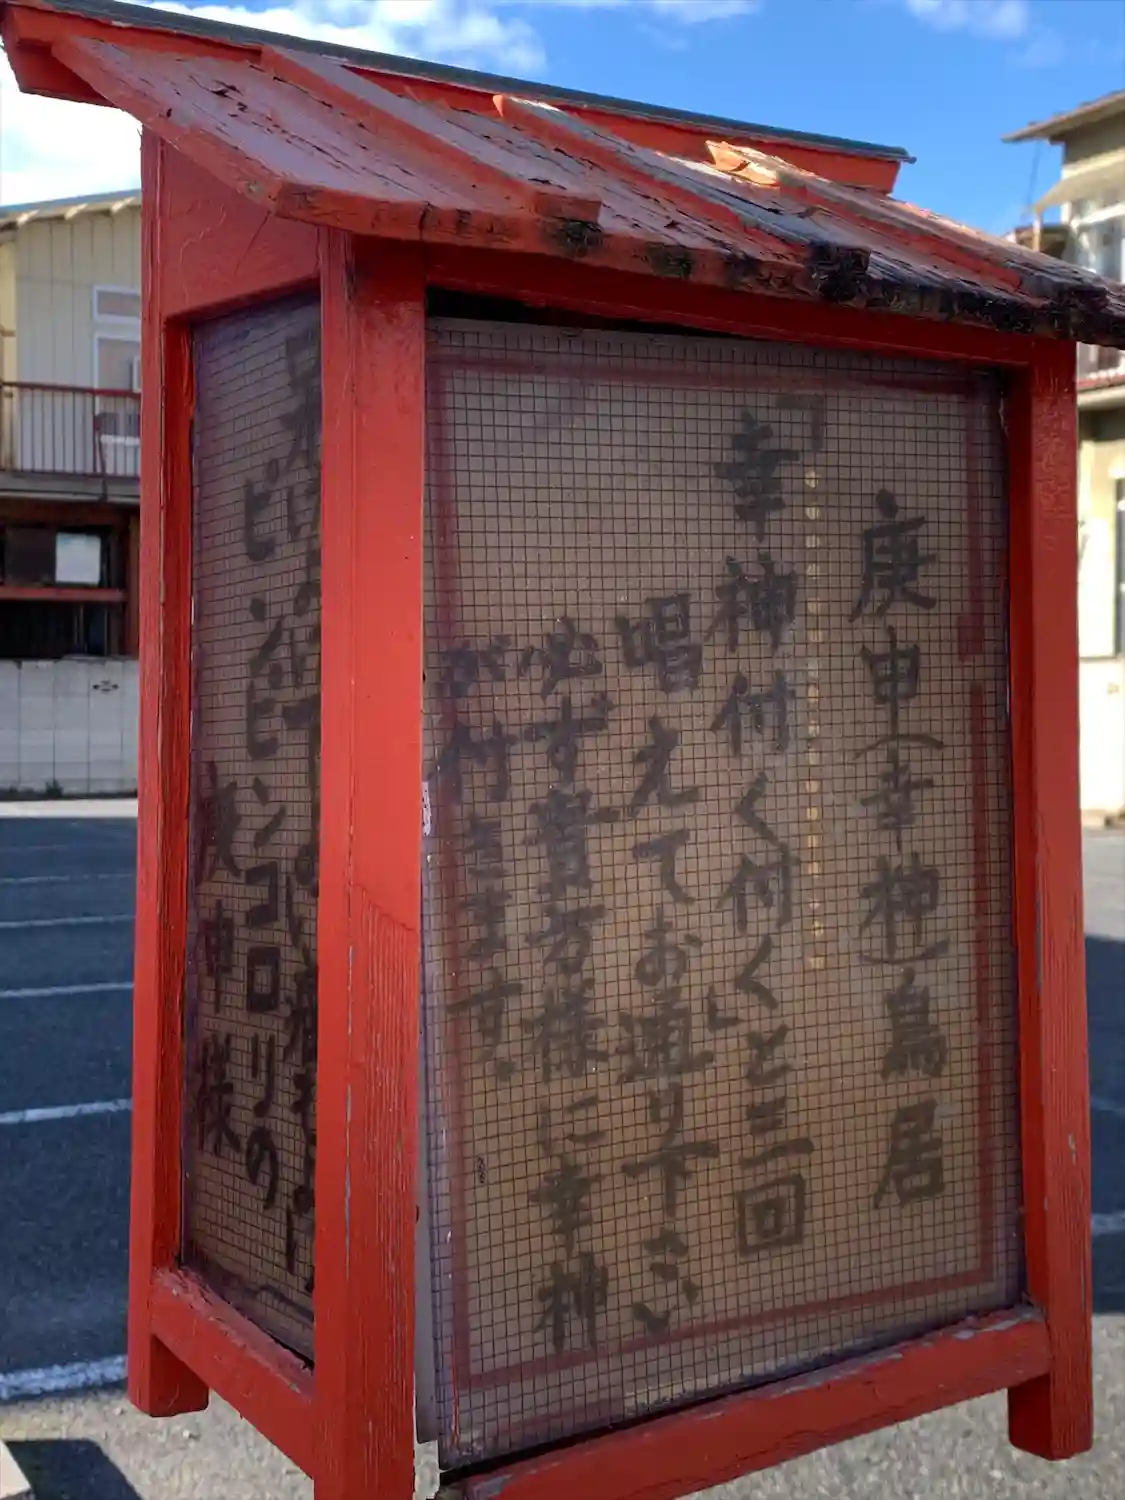 庚申(幸神)鳥居
「幸神付く付くと三回
唱えてお通り下さい」
必ず貴方様に幸神
が付きます。
ピンピンコロリの
庚申様